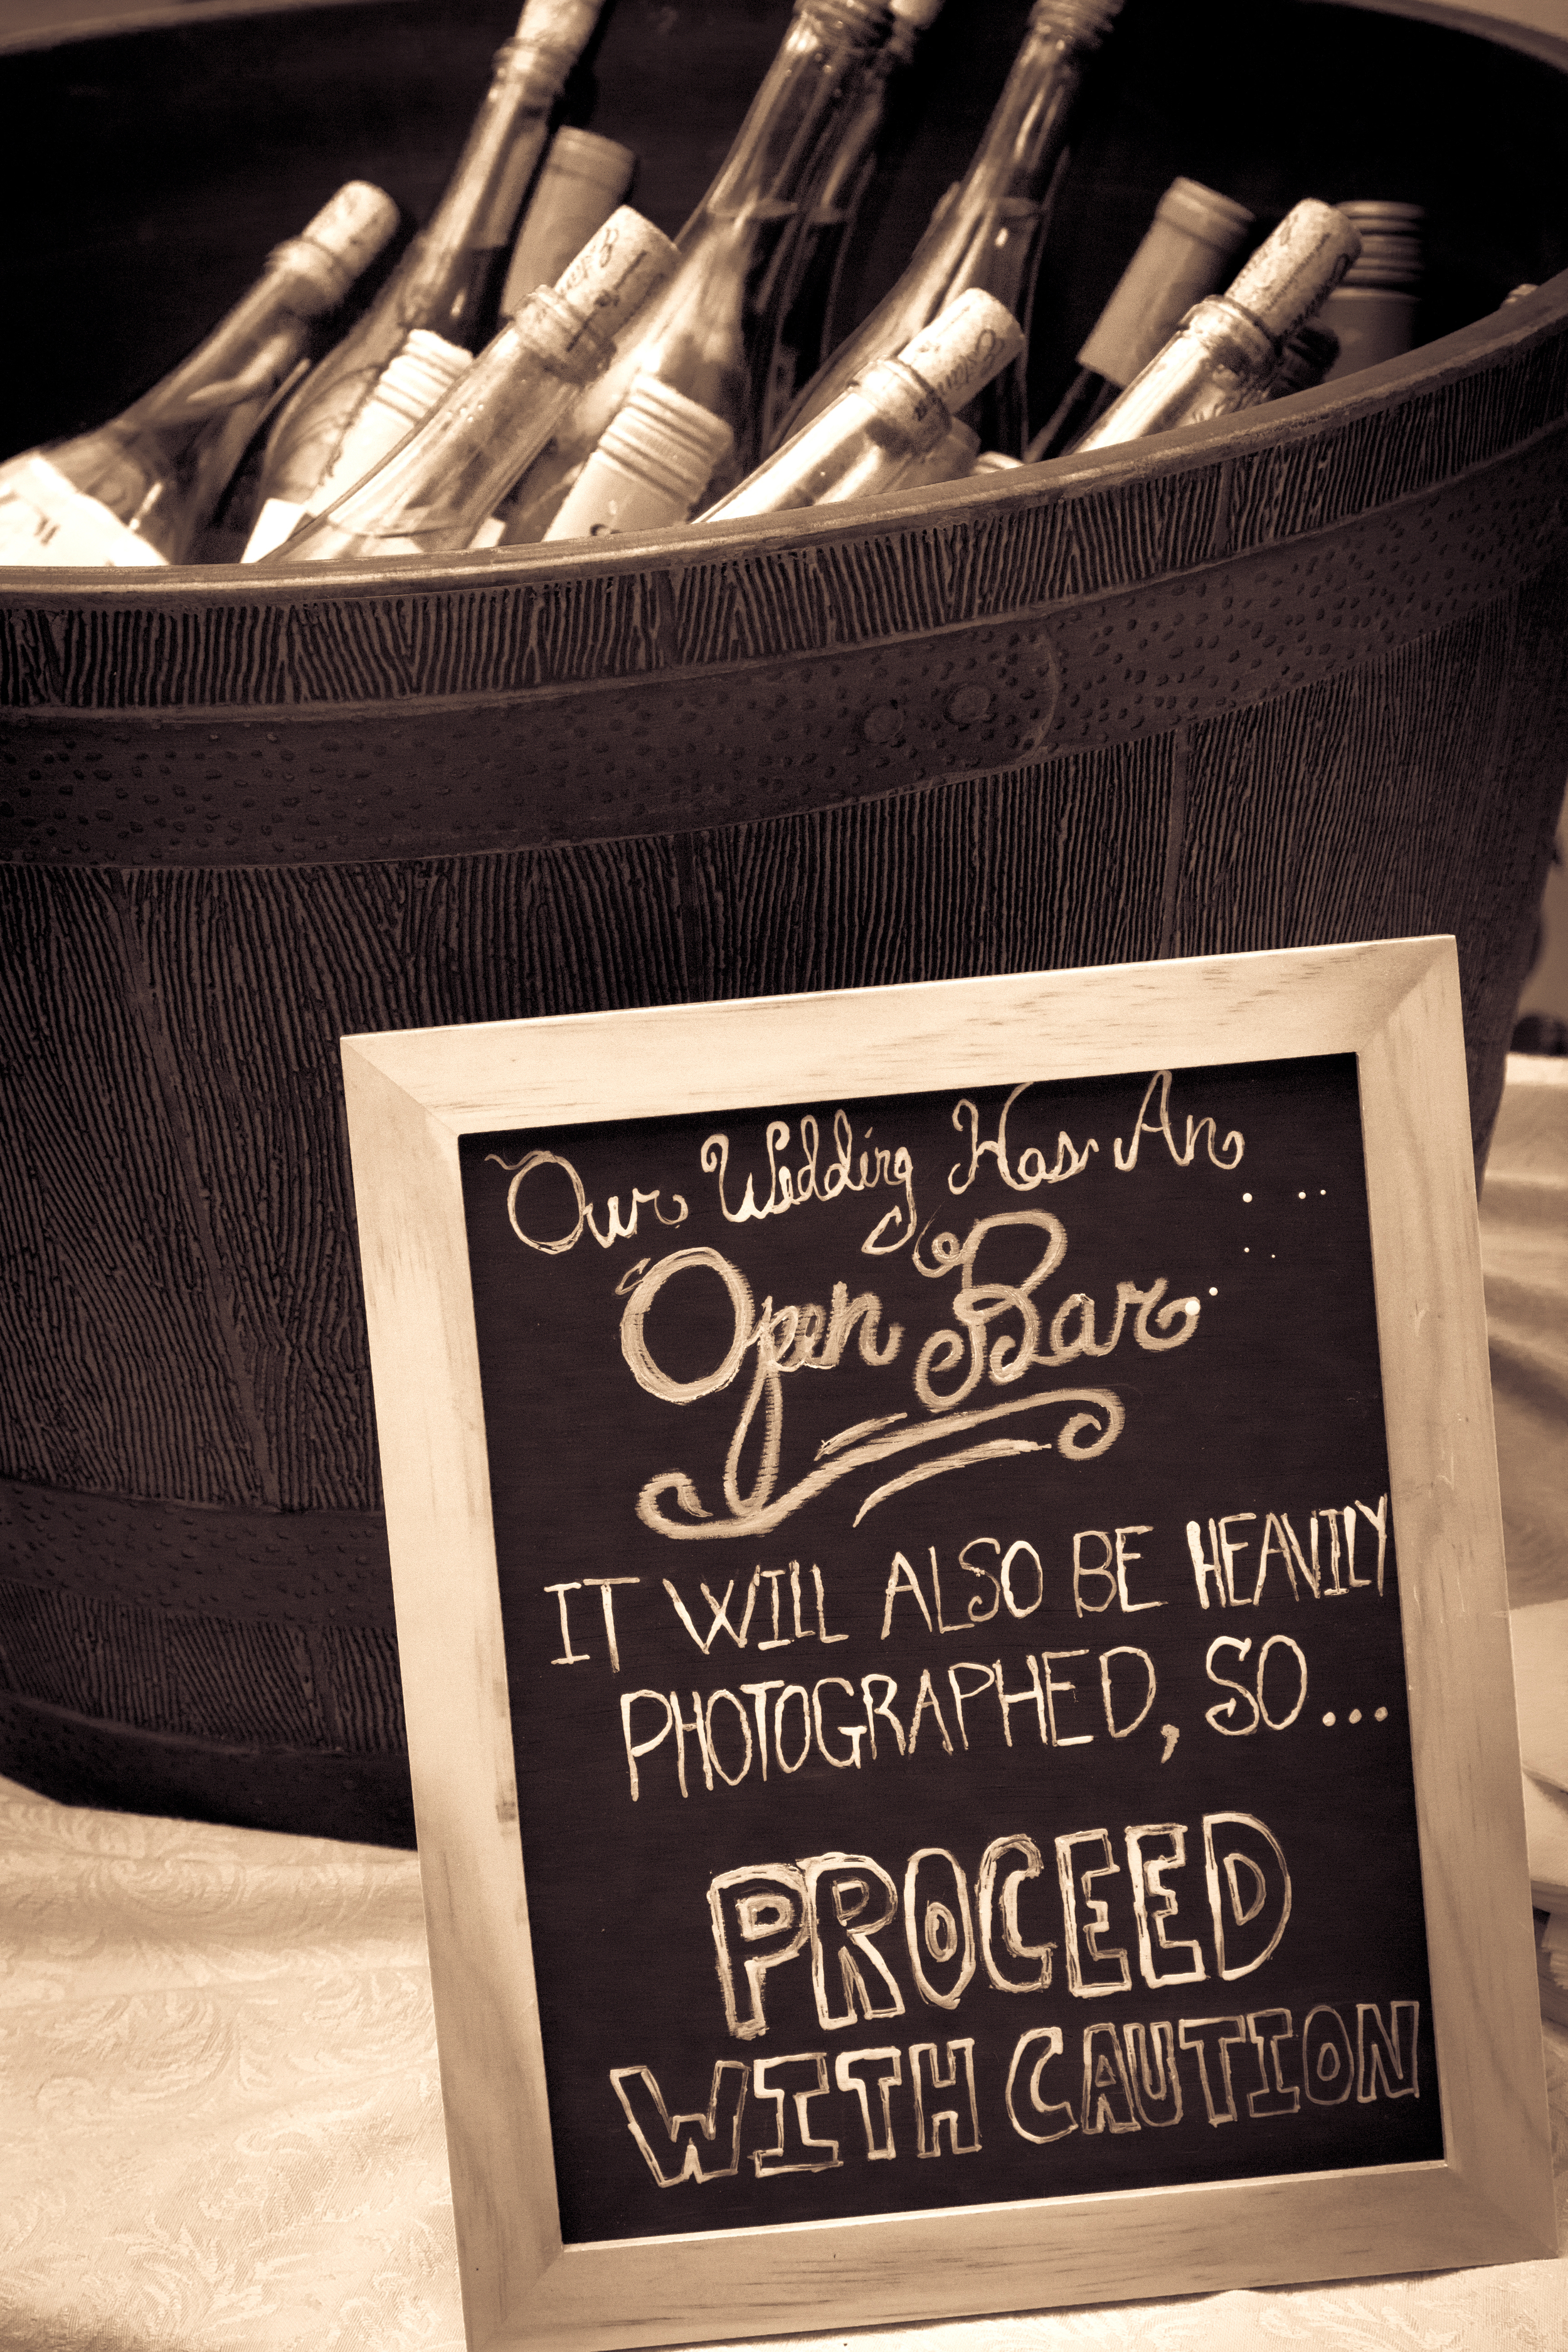 Our Wedding Has An
Open Bar
IT WILL ALSO BE HEAVILY
PHOTOGRAPHED, SO...
PROCEED
WITH CAUTION